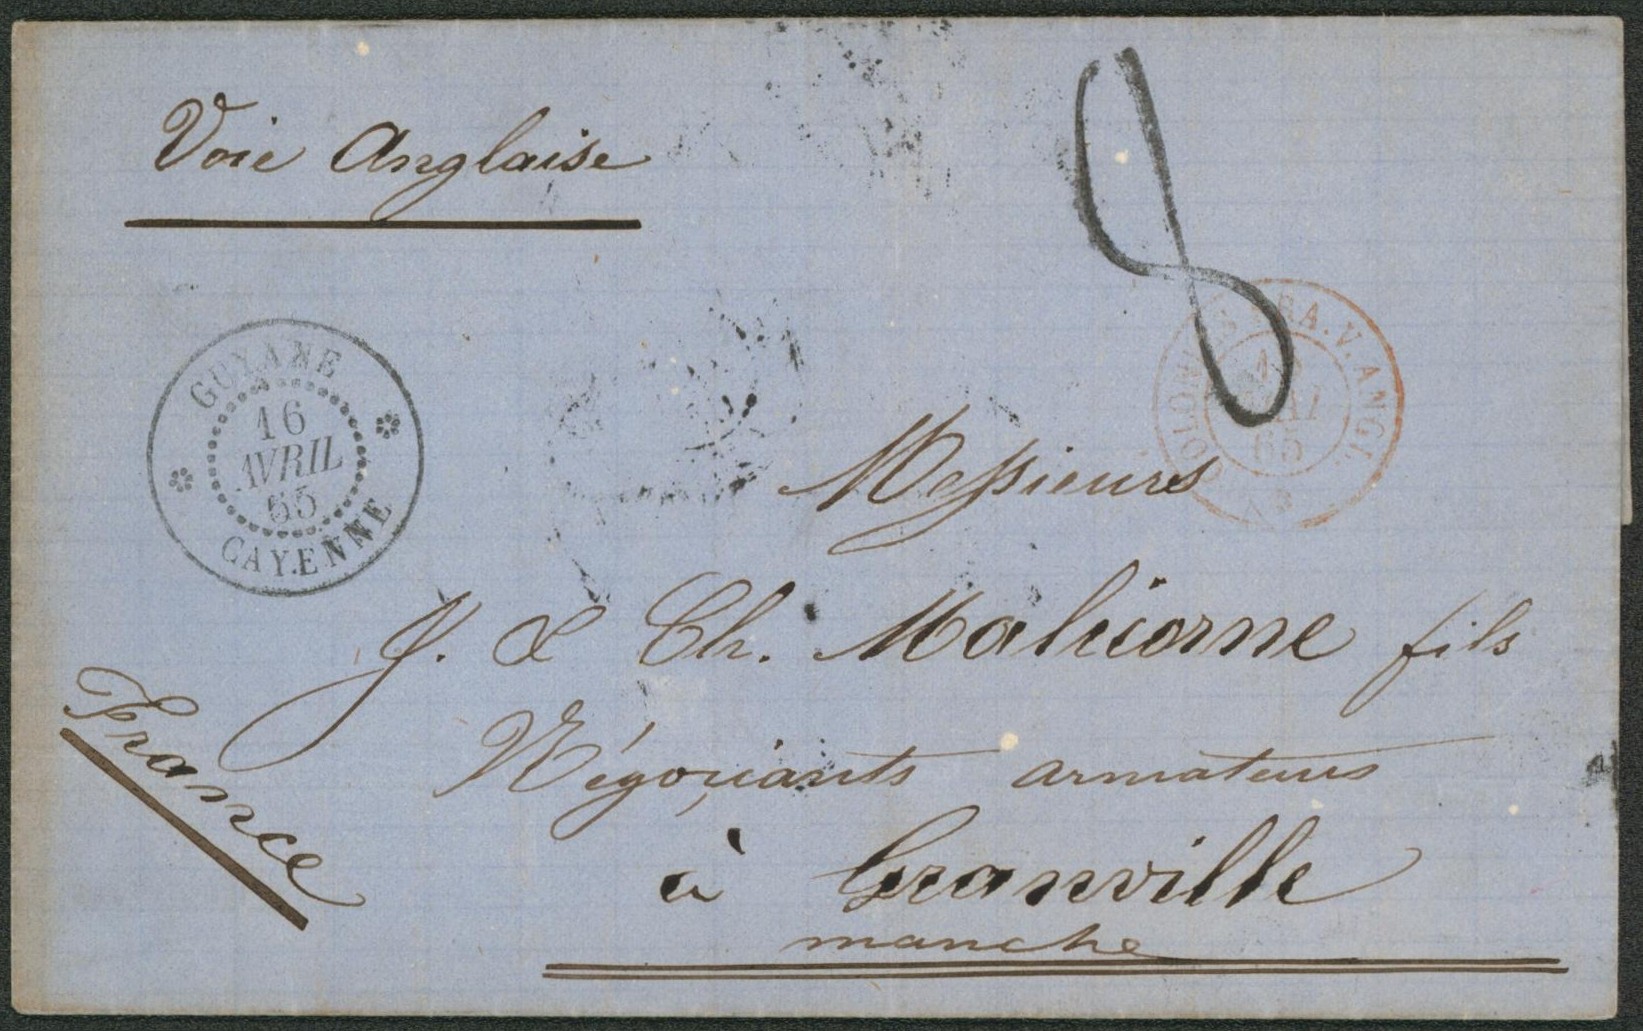 Voie Anglaise
8
GUYANE
16
AVRIL
65
CAYENNE
COLONIES FRA. V. ANGL.
MAI
65
Messieurs
J. & Ch. Malicorne fils
Négociants armateurs
à Granville
manche
France